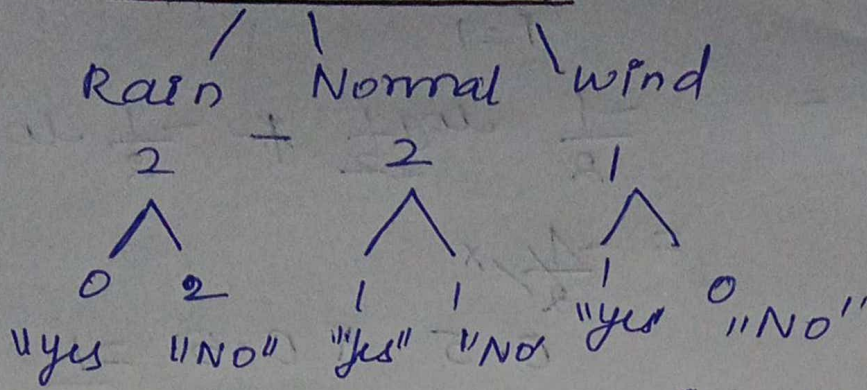 Rain Normal Wind
2 2 1
0 2 1 1 1 0
"yes "NO" "yes" "NO "yes" "NO"